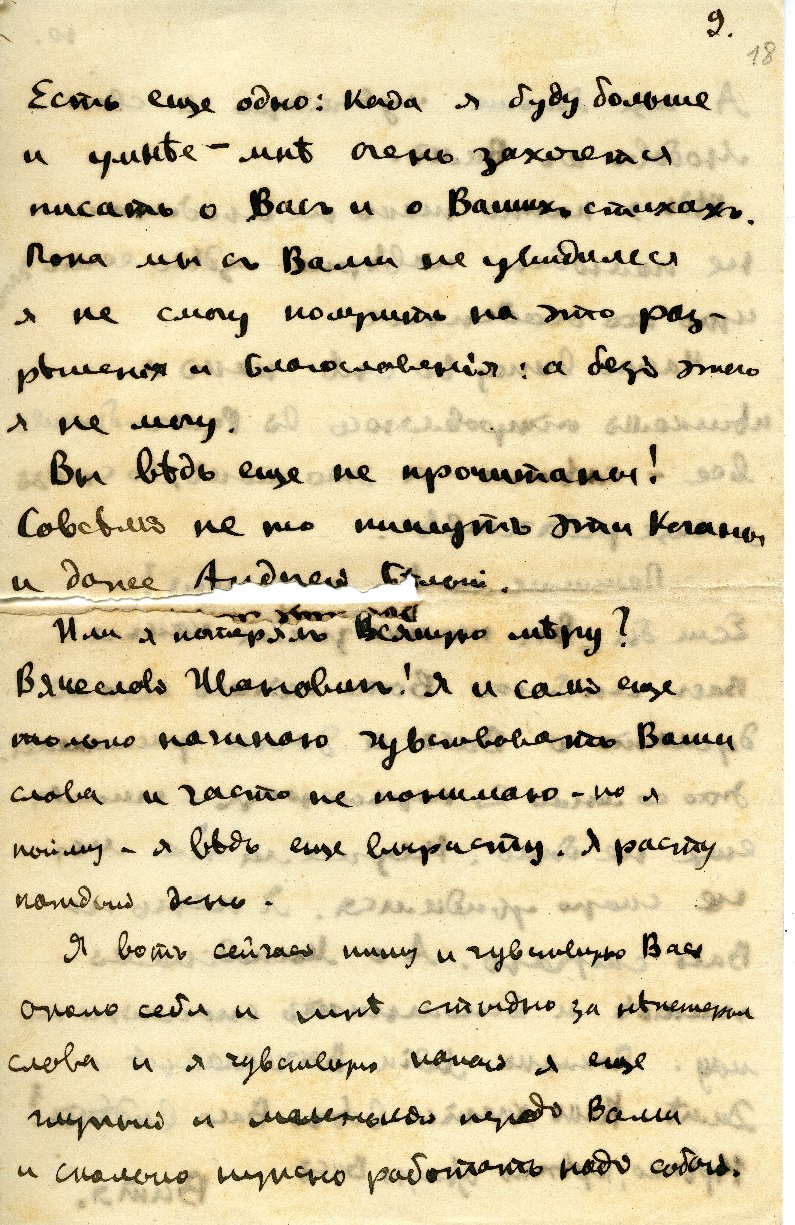 9.
18
Есть еще одно: када я буду больше
и умнѣе – мнѣ очень захочется
писать о Васъ и о Вашихъ стихахъ.
Пока мы съ Вами не увидимся
я не смогу получить на это раз-
рѣшенія и благословенія: а безъ этого
я не могу.
Вы вѣдь еще не прочитаны!
Совсѣмъ не то пишутъ эти Коганы
и даже Андрей Бѣлый.
Или я потерялъ всякую мѣру?
Вячеславъ Ивановичъ! Я и самъ еще
только начинаю чувствовать Ваши
слова и часто не понимаю – но я
пойму – я вѣдь еще вырасту. Я расту
каждый день.
Я вотъ сейчасъ пишу и чувствую Васъ
около себя и мнѣ стыдно за нѣкоторыя
слова и я чувствую какой я еще
глупый и маленькій передъ Вами
и сколько нужно работать надъ собой.